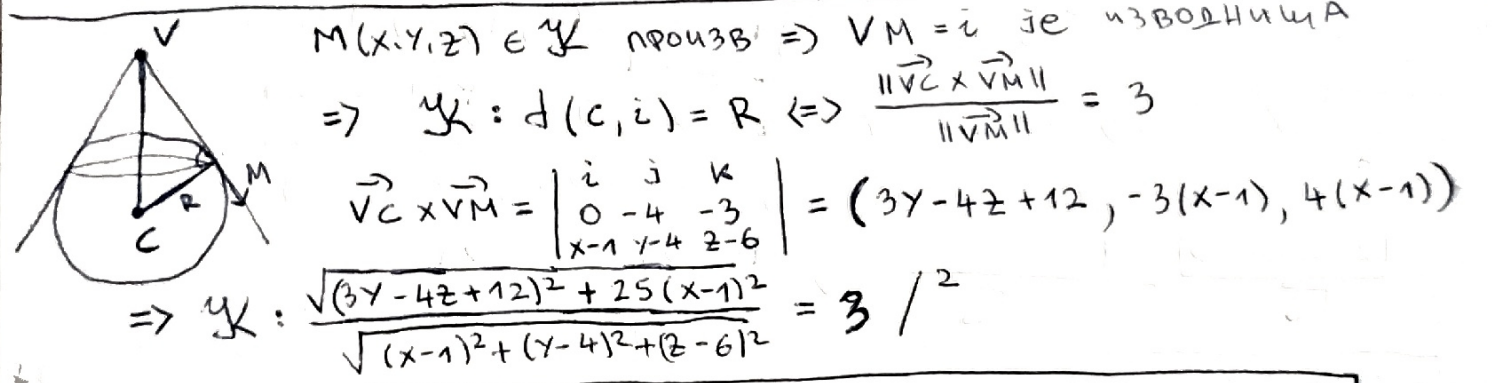 V
M(X,Y,Z) ∈ 𝒦 произв => VM = i је изводница
=> 𝒦 : d(C, i) = R <=> ||VC→ × VM→|| / ||VM→|| = 3
M
R
C
VC→ × VM→ = | i j k ; 0 -4 -3 ; x-1 y-4 z-6 | = (3Y-4Z+12, -3(X-1), 4(X-1))
=> 𝒦 : √((3Y-4Z+12)² + 25(X-1)²) / √((X-1)²+(Y-4)²+(Z-6)²) = 3 /²